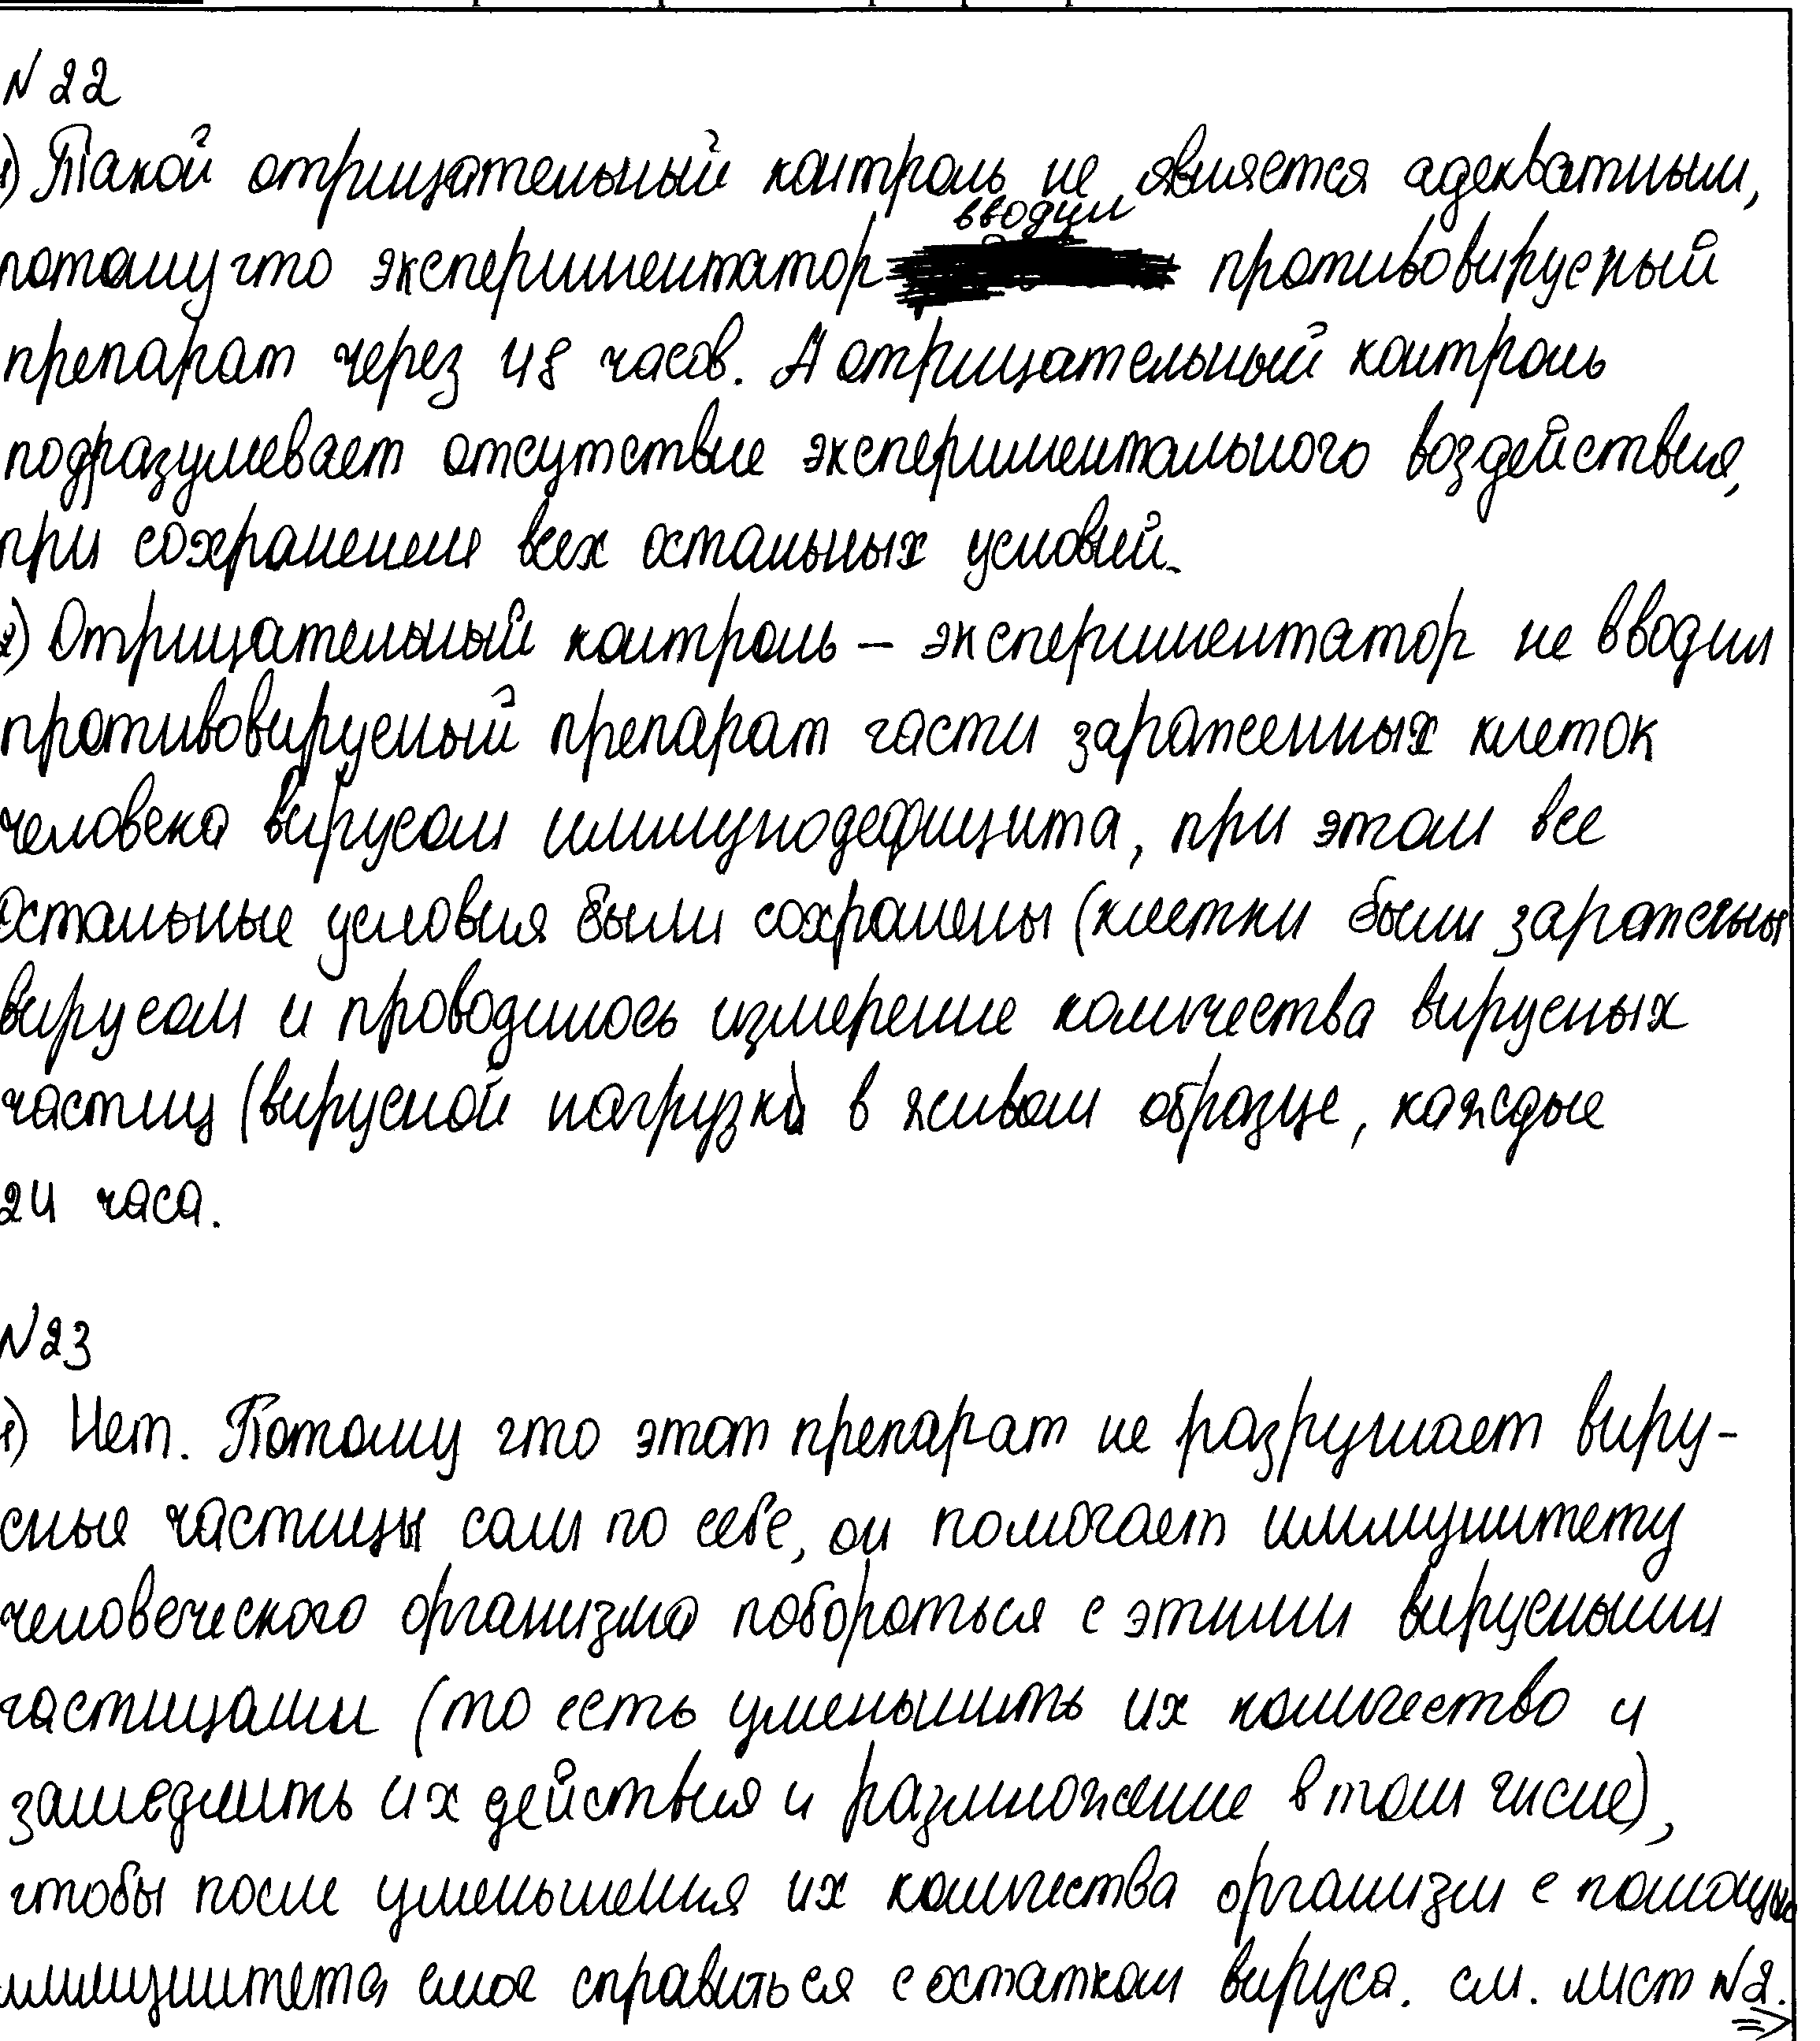 N 22
1) Такой отрицательный контроль не является адекватным,
потому что экспериментатор вводил противовирусный
препарат через 48 часов. А отрицательный контроль
подразумевает отсутствие экспериментального воздействия,
при сохранении всех остальных условий.
2) Отрицательный контроль – экспериментатор не вводил
противовирусный препарат части зараженных клеток
человека вирусом иммунодефицита, при этом все
остальные условия были сохранены (клетки были заражены
вирусом и проводилось измерение количества вирусных
частиц (вирусной нагрузки) в живом образце, каждые
24 часа.
N 23
1) Нет. Потому что этот препарат не разрушает виру-
сные частицы сам по себе, он помогает иммунитету
человеческого организма побороться с этими вирусными
частицами (то есть уменьшить их количество и
замедлить их действия и размножение в том числе),
чтобы после уменьшения их количества организм с помощью
иммунитета смог справиться с остатком вируса. см. лист N2.
⇒